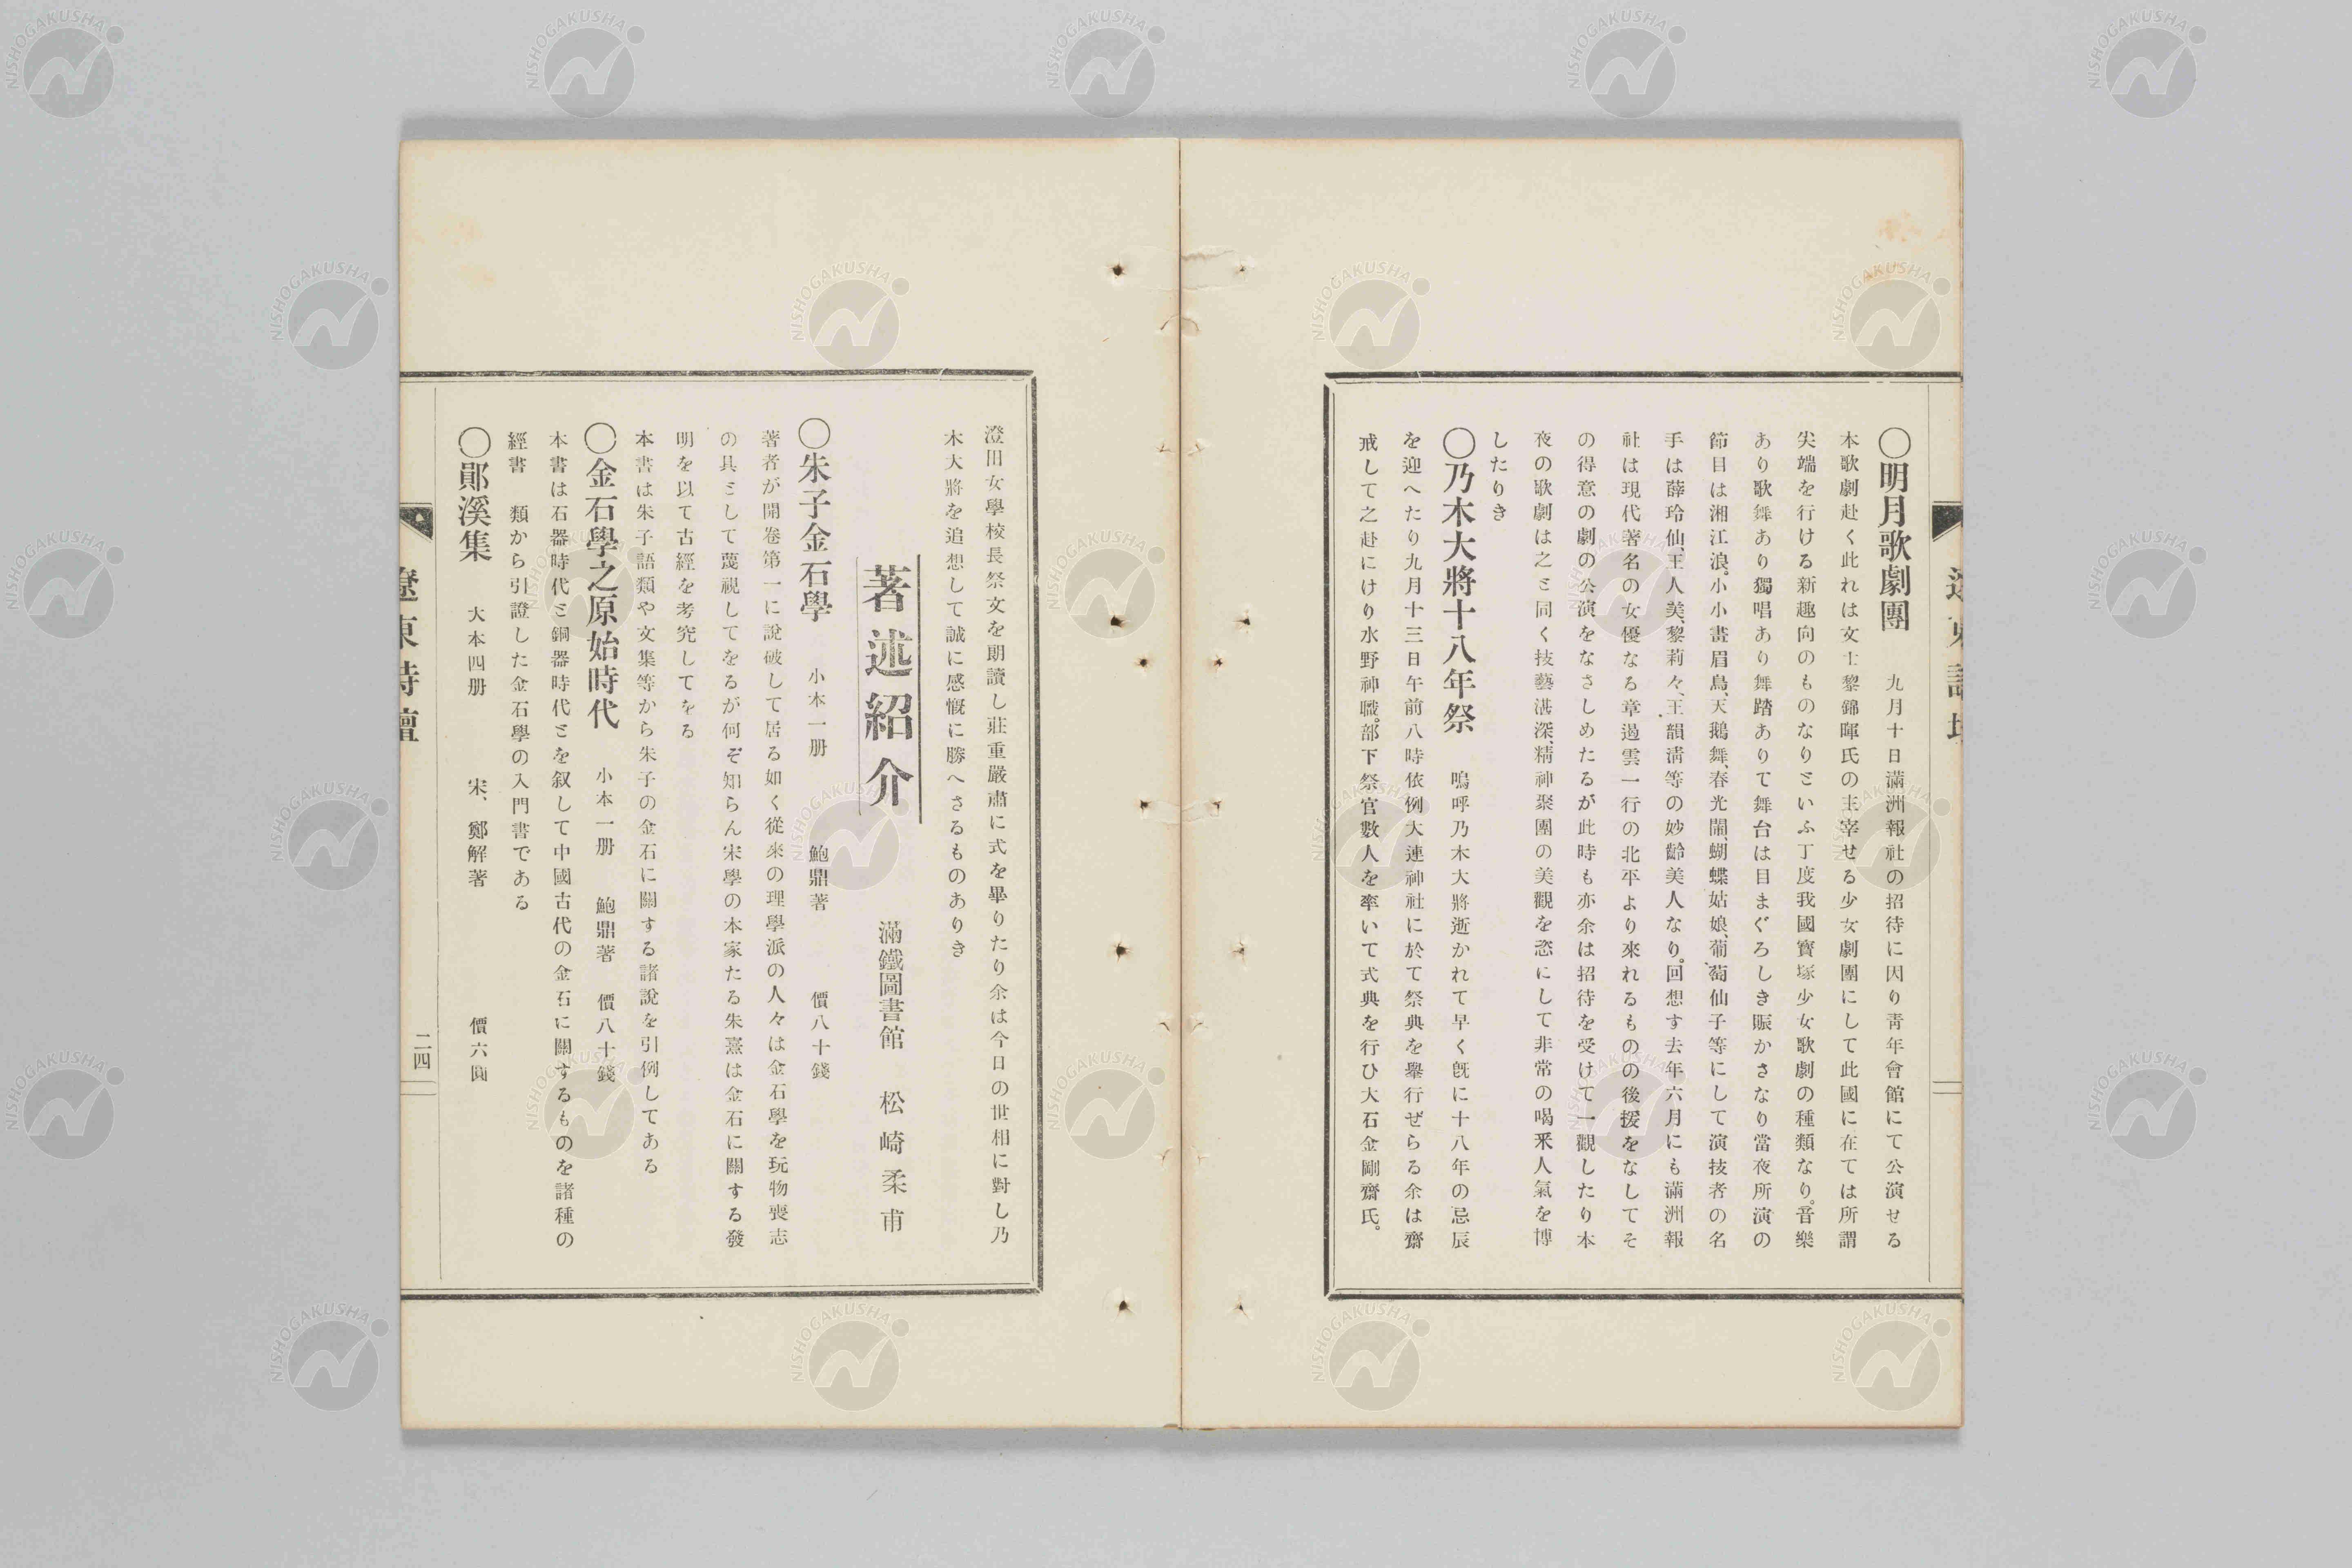 〇明月歌劇團　九月十日滿洲報社の招待に因り靑年會館にて公演せる
本歌劇赴く此れは文士黎錦暉氏の主宰せる少女劇團にして此國に在ては所謂
尖端を行ける新趣向のものなりといふ丁度我國寶塚少女歌劇の種類なり。音樂
あり歌舞あり獨唱あり舞踏ありて舞台は目まぐろしき賑かさなり當夜所演の
節目は湘江浪。小小畫眉鳥、天鵝舞、春光閙、蝴蝶姑娘、葡萄仙子等にして演技者の名
手は薛玲仙、王人美、黎莉々、王韻淸等の妙齡美人なり。回想す去年六月にも滿洲報
社は現代著名の女優なる章遏雲一行の北平より來れるものの後援をなしてそ
の得意の劇の公演をなさしめたるが此時も亦余は招待を受けて一觀したり本
夜の歌劇は之と同く技藝湛深、精神聚團の美觀を恣にして非常の喝釆人氣を博
したりき
〇乃木大將十八年祭　嗚呼乃木大將逝かれて早く旣に十八年の忌辰
を迎へたり九月十三日午前八時依例大連神社に於て祭典を擧行ぜらる余は齋
戒して之赴にけり水野神職。部下祭官數人を率いて式典を行ひ大石金剛齋氏。
澄田女學校長祭文を朗讀し莊重嚴肅に式を畢りたり余は今日の世相に對し乃
木大將を追想して誠に感慨に勝へさるものありき
著述紹介　滿鐵圖書館　松崎柔甫
〇朱子金石學　小本一册　鮑鼎著　價八十錢
著者が開卷第一に說破して居る如く從來の理學派の人々は金石學を玩物喪志
の具として蔑視してをるが何ぞ知らん宋學の本家たる朱熹は金石に關する發
明を以て古經を考究してをる
本書は朱子語類や文集等から朱子の金石に關する諸說を引例してある
〇金石學之原始時代　小本一册　鮑鼎著　價八十錢
本書は石器時代と銅器時代とを叙して中國古代の金石に關するものを諸種の
經書　類から引證した金石學の入門書である
〇鄖溪集　大本四册　宋、鄭解著　價六圓
遼東詩壇
二四